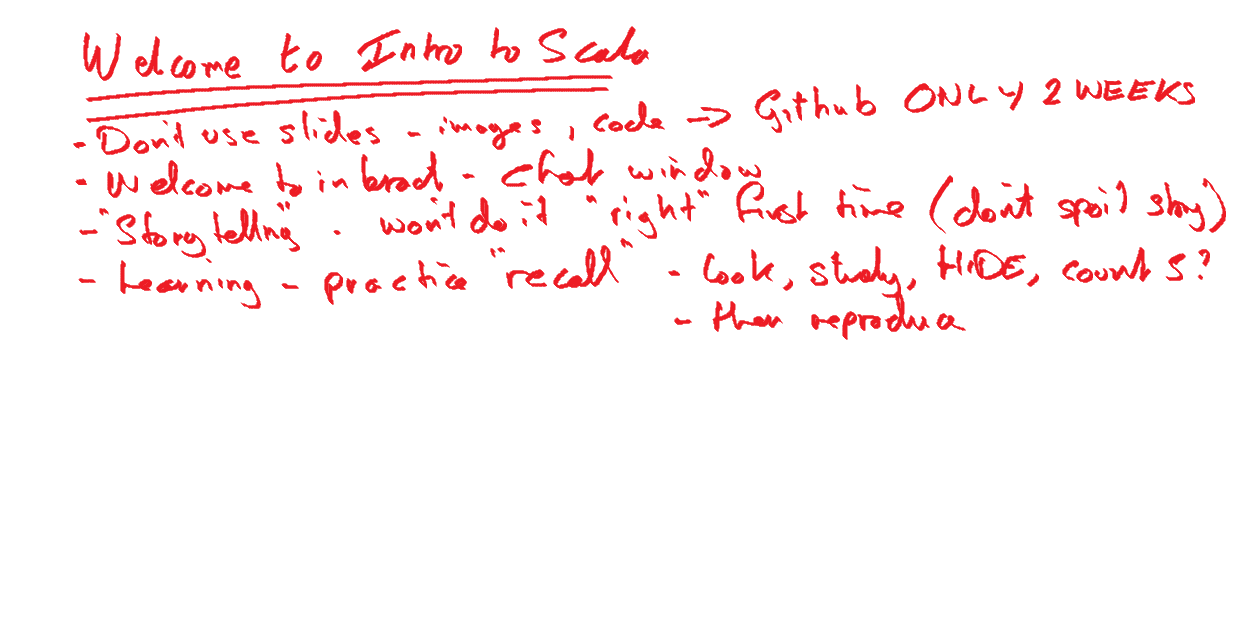 Welcome to Intro to Scala
- Don't use slides - images, code → Github ONLY 2 WEEKS
- Welcome to - chat window
- "Storytelling" - won't do it "right" first time (don't spoil story)
- Learning - practice "recall" - look, study, HIDE, count 5?
- then reproduce